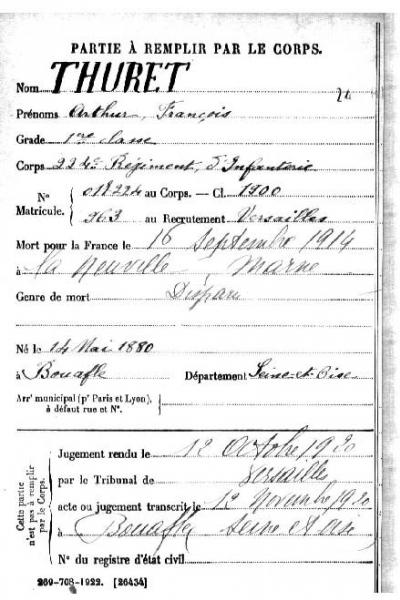 PARTIE À REMPLIR PAR LE CORPS.
Nom THURET
24
Prénoms Arthur, François
Grade 1re classe
Corps 224e Régiment d'Infanterie
N° Matricule. 018224 au Corps. — Cl. 1900
963 au Recrutement Versailles
Mort pour la France le 16 septembre 1914
à la Neuville, Marne
Genre de mort Disparu
Né le 14 Mai 1880
à Bouafle Département Seine-et-Oise
Arrt municipal (pr Paris et Lyon),
à défaut rue et N°.
Cette partie n'est pas à remplir par le Corps.
Jugement rendu le 12 Octobre 1920
par le Tribunal de Versailles
acte ou jugement transcrit le 12 Novembre 1920
à Bouafle Seine et Oise
N° du registre d'état civil
269-708-1922. [26434]